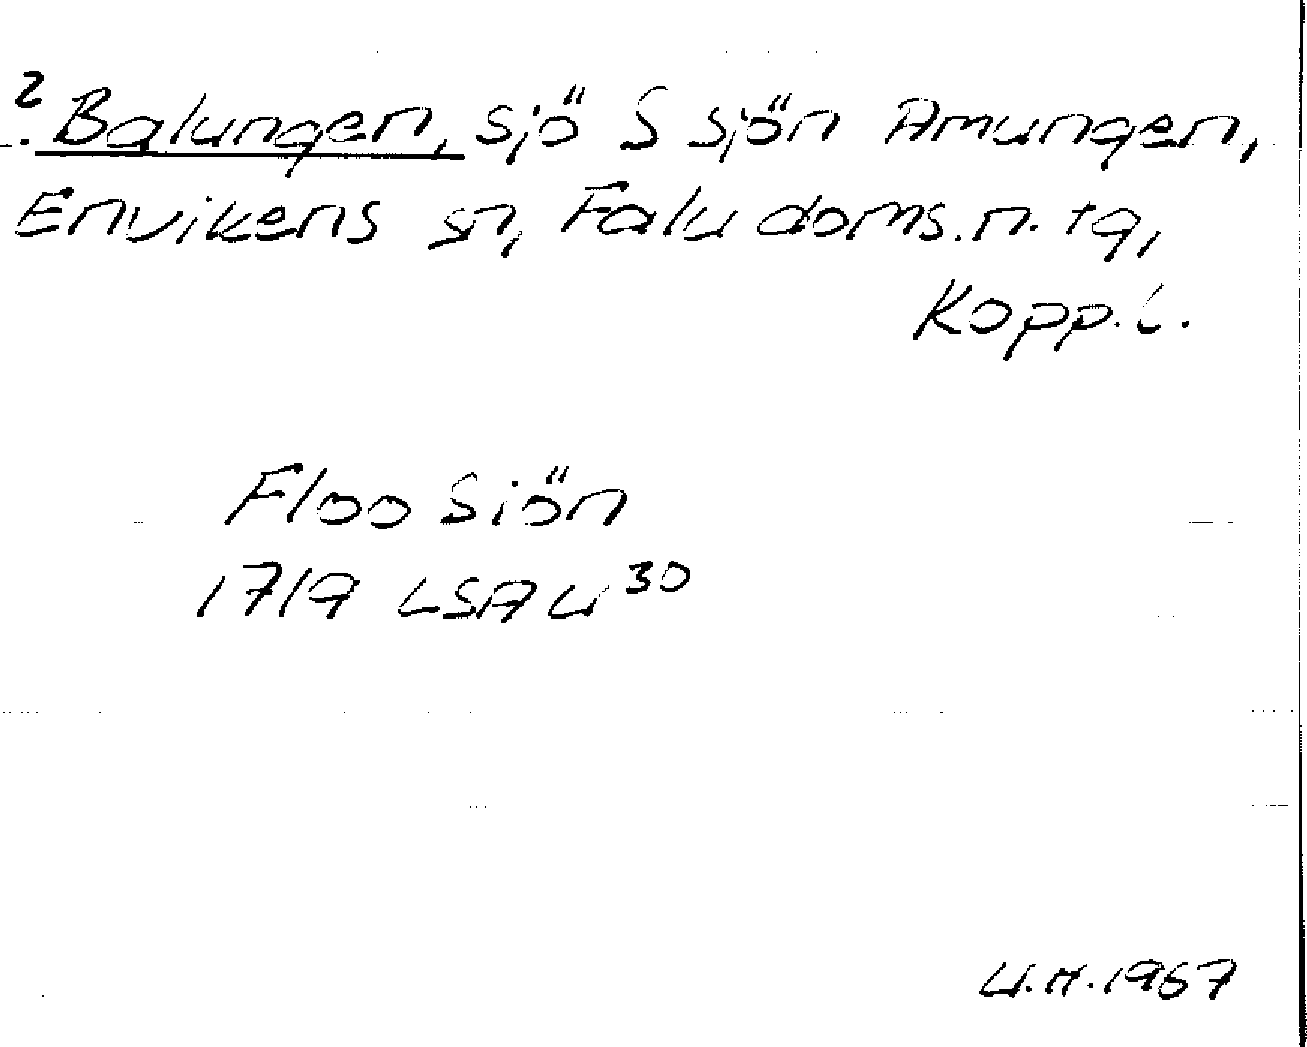 2. Balungen, sjö S sjön Amungen,
Envikens sn, Falu doms.n. tg,
Kopp. l.
Floo Siön
1719 LSA U 30
U.H. 1967